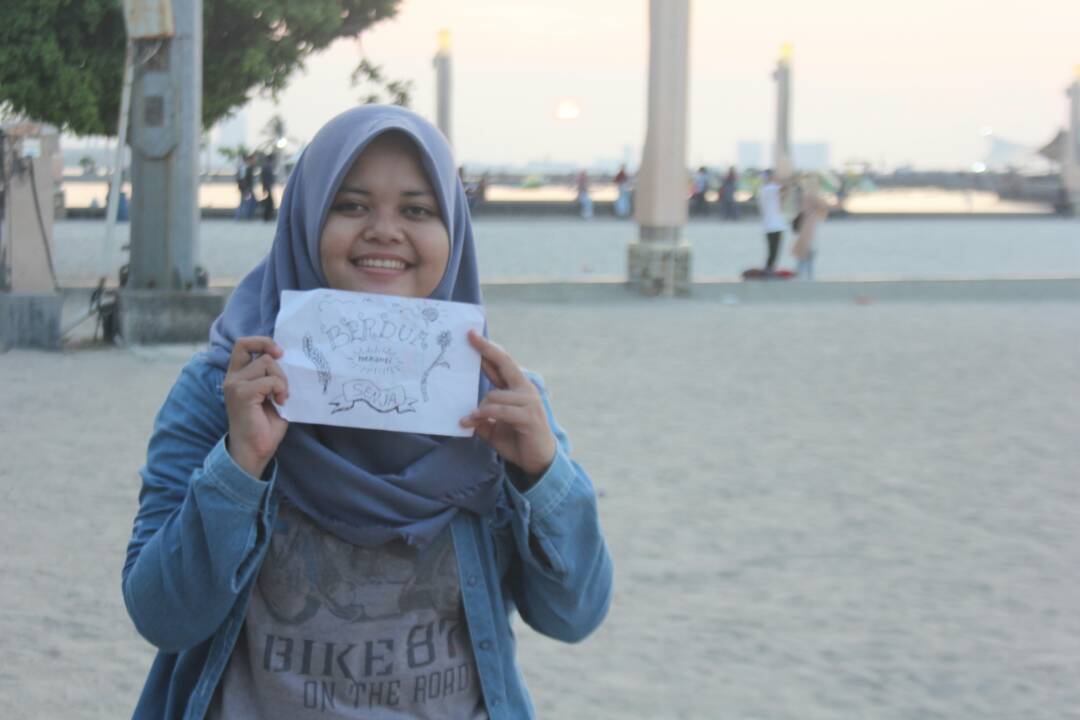 BERDUA
menanti
SENJA
BIKE 87
ON THE ROAD